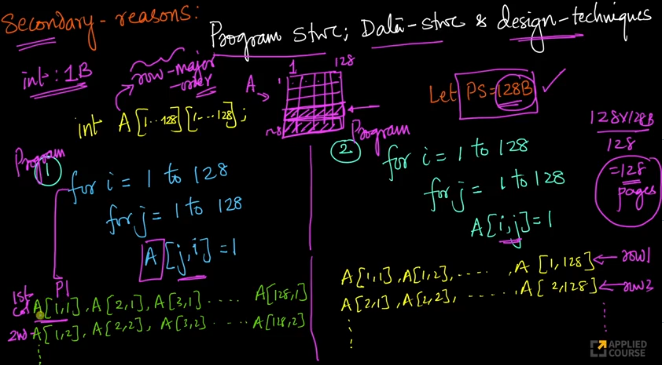 Secondary-reasons:
Program struc; Data-struc & design-techniques
int: 1B
row-major
order
1 128
A
1
128
Let PS=128B
int A[1...128][1...128];
128x128B
128
=128
pages
Program
1
for i = 1 to 128
for j = 1 to 128
A[j,i]=1
P1
1st col A[1,1], A[2,1], A[3,1] ..... A[128,1]
2nd A[1,2], A[2,2], A[3,2] ..... A[128,2]
Program
2
for i = 1 to 128
for j = 1 to 128
A[i,j]=1
A[1,1], A[1,2], ......, A[1,128] row1
A[2,1], A[2,2], ......, A[2,128] row2
APPLIED
COURSE